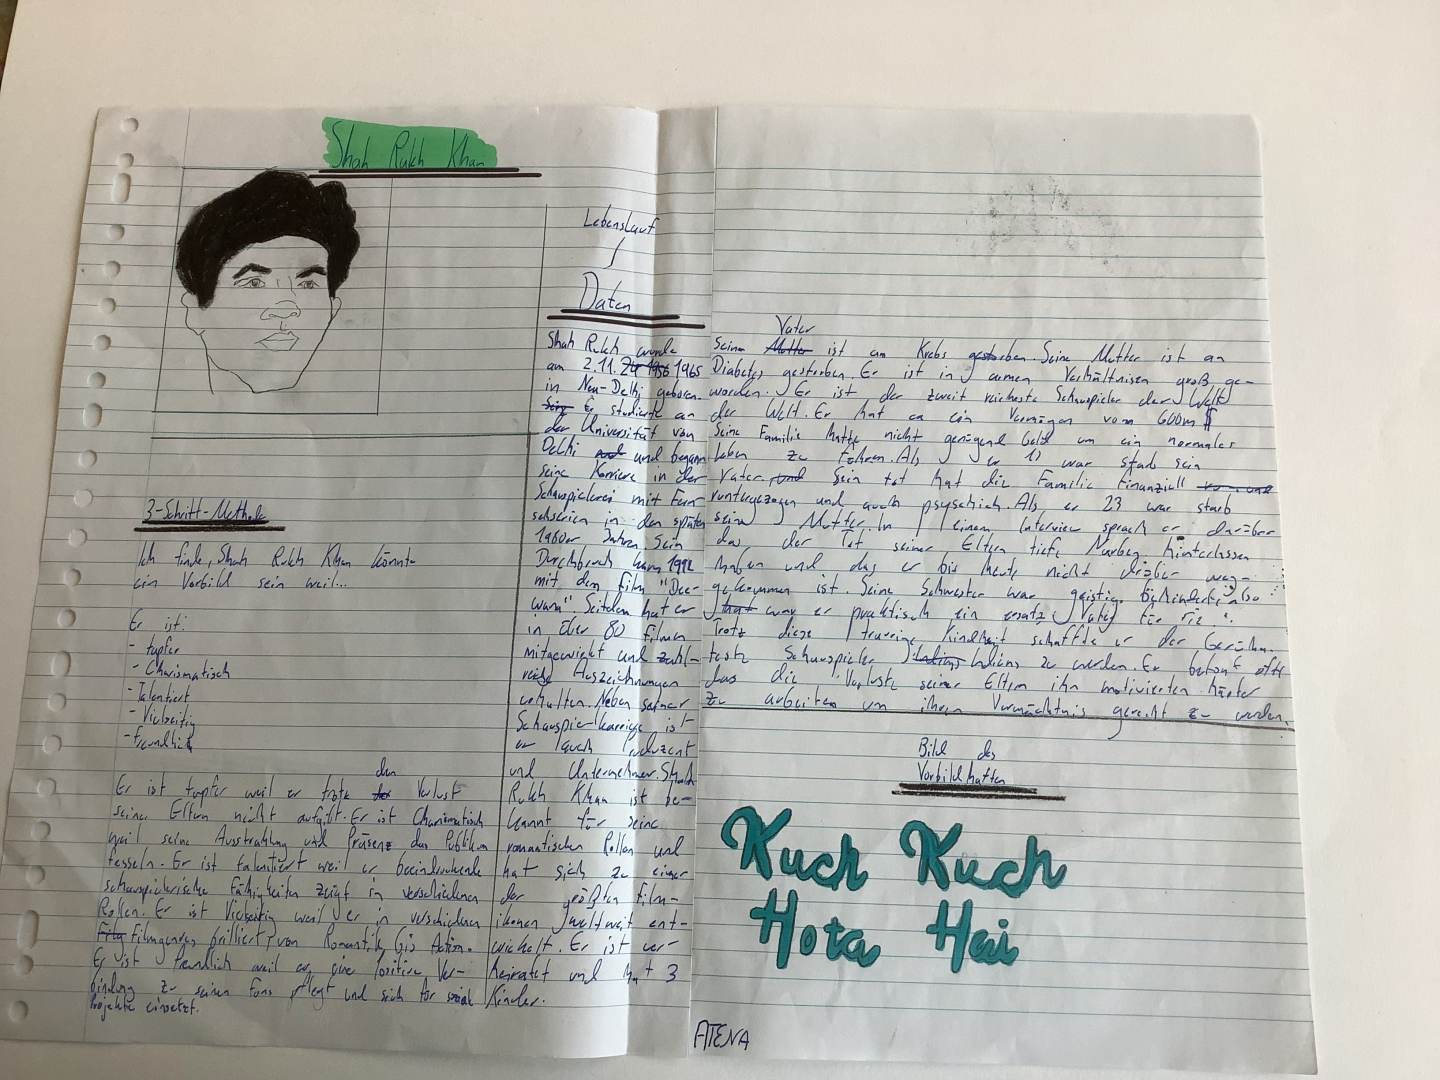 Shah Rukh Khan
3-Schritt-Methode
Ich finde, Shah Rukh Khan könnte
ein Vorbild sein weil...
Er ist:
- tapfer
- Charismatisch
- Talentiert
- Vielseitig
- freundlich
den
Er ist tapfer weil er trotz Verlust
seine Eltern nicht aufgibt. Er ist Charismatisch
weil seine Ausstrahlung und Präsenz das Publikum
fesseln. Er ist talentiert weil er beeindruckende
schauspielerische Fähigkeiten zeigt in verschiedenen
Rollen. Er ist Vielseitig weil er in verschiedenen
Filmgenres brilliert von Romantik bis Action.
Er ist freundlich weil er eine Positive Ver-
bindung zu seinen Fans pflegt und sich für soziale
Projekte einsetzt.
Lebenslauf
/
Daten
Shah Rukh wurde
am 2.11. 1965
in Neu-Delhi geboren.
Er studierte an
der Universität von
Delhi und begann
seine Karriere in der
Schauspielerei mit Fern-
sehserien in den späten
1980er Jahren. Sein
Durchbruch kam 1992
mit dem Film "Dee-
wana" Seitdem hat er
in über 80 Filmen
mitgewirkt und zahl-
reiche Auszeichnungen
erhalten. Neben seiner
Schauspielkarriere ist
er auch Produzent
und Unternehmer. Shah
Rukh Khan ist be-
kannt für seine
romantischen Rollen und
hat sich zu einer
der größten Film-
ikonen weltweit ent-
wickelt. Er ist ver-
heiratet und hat 3
Kinder.
Vater
Seine Mutter ist an Krebs gestorben. Seine Mutter ist an
Diabetes gestorben. Er ist in armen Verhältnisen groß ge-
worden. Er ist der zweit reicheste Schauspieler der Welt
der Welt. Er hat ca ein Vermögen vom 600m $
Seine Familie hatte nicht genügend Geld um ein normales
leben zu führen. Als er war starb sein
Vater und Sein tot hat die Familie Finanziell
runtergezogen und auch psyschich. Als er 23 war starb
seine Mutter. In einem Interview sprach er darüber
das der Tot seiner Eltern tiefe Narben hinterlassen
haben und das er bis heute nicht drüber weg-
gekommen ist. Seine Schwester war geistig behindert also
hat war er praktisch ein ersatz Vater für sie.
Trotz diese traurige Kindheit schaffte er der Berühm-
teste Schauspieler Indiens Indiens zu werden. Er betont oft
das die Verluste seiner Eltern ihn motivierten härter
zu arbeiten um ihren Vermächtnis gerecht zu werden.
Bild des
Vorbildhaften
Kuch Kuch
Hota Hai
ATENA